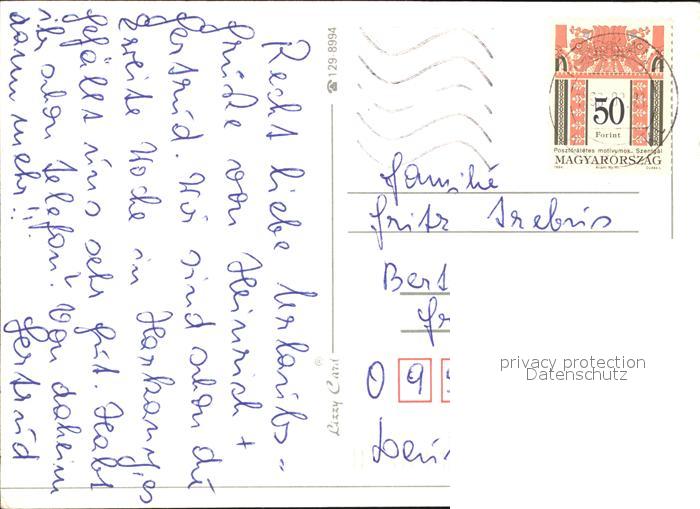 Recht liebe Urlaubs-
grüße von Heinrich +
Gertrud. Wir sind schon die
zweite Woche in Harkany, es
gefällt uns sehr gut. Habt
ihr schon Telefon? Von daheim
dann mehr!! Gertrud
☎ 129 8994
Lizzy Card
50
Forint
Posztórátétes motívumos. Szentgál
MAGYARORSZÁG
Familie
Fritz Trebus
Bert
0 9
privacy protection
Datenschutz